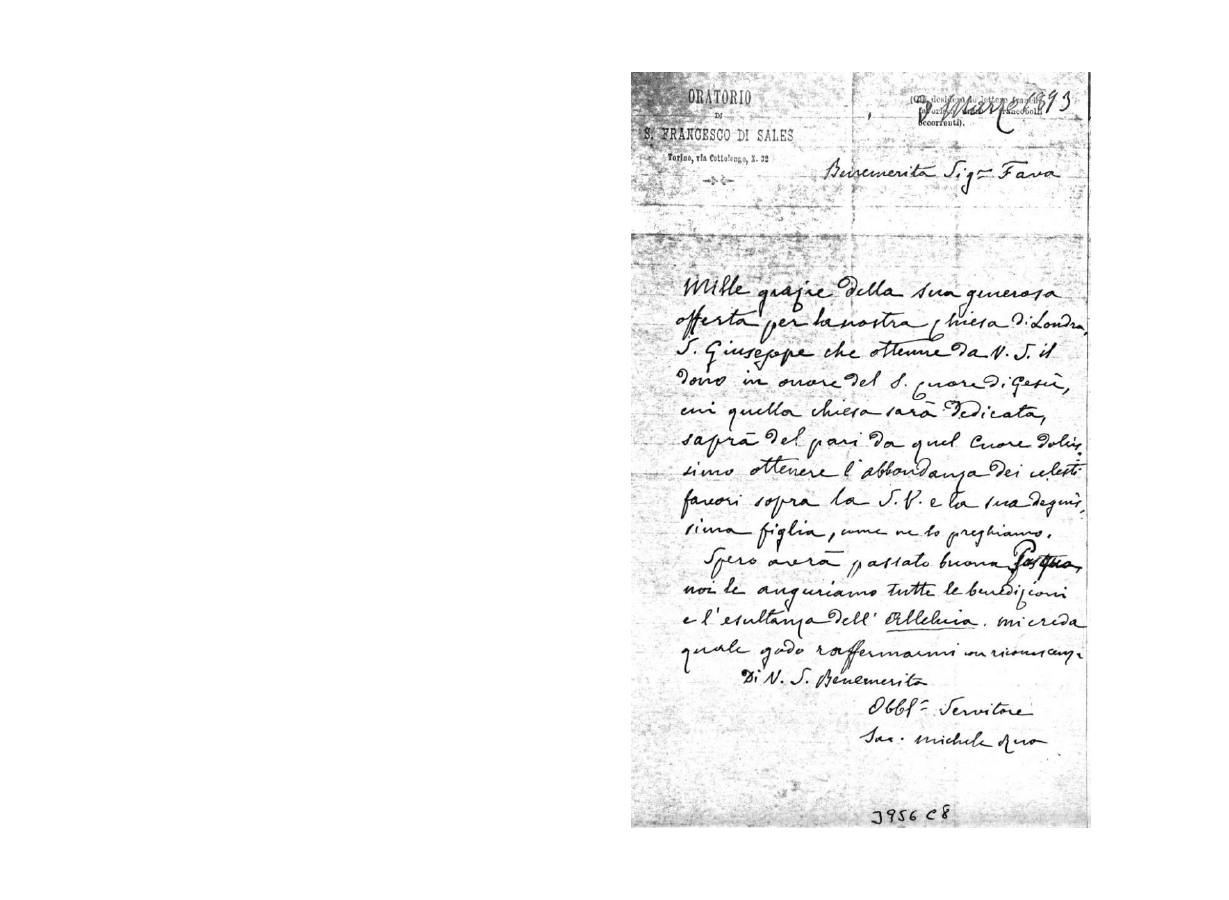 ORATORIO
DI
S. FRANCESCO DI SALES
Torino, via Cottolengo, N. 32
(Chi desidera lettere
occorrenti).
3 Marzo 1893
Benemerita Sigra Fava
Mille grazie della sua generosa
offerta per la nostra Chiesa di Londra,
S. Giuseppe che ottenne da N. S. il
dono in onore del S. Cuore di Gesù,
cui quella chiesa sarà dedicata,
saprà del pari da quel Cuore dolcis,
simo ottenere l'abbondanza dei celesti
favori sopra la S. V. e la sua degnis,
sima figlia, come ne lo preghiamo.
Spero avrà passato buona Pasqua,
noi le auguriamo tutte le benedizioni
e l'esultanza dell' Alleluia. Mi creda
quale godo raffermarmi con riconoscenza
Di V. S. Benemerita
Obblmo Servitore
Sac. Michele Rua
3956 C 8